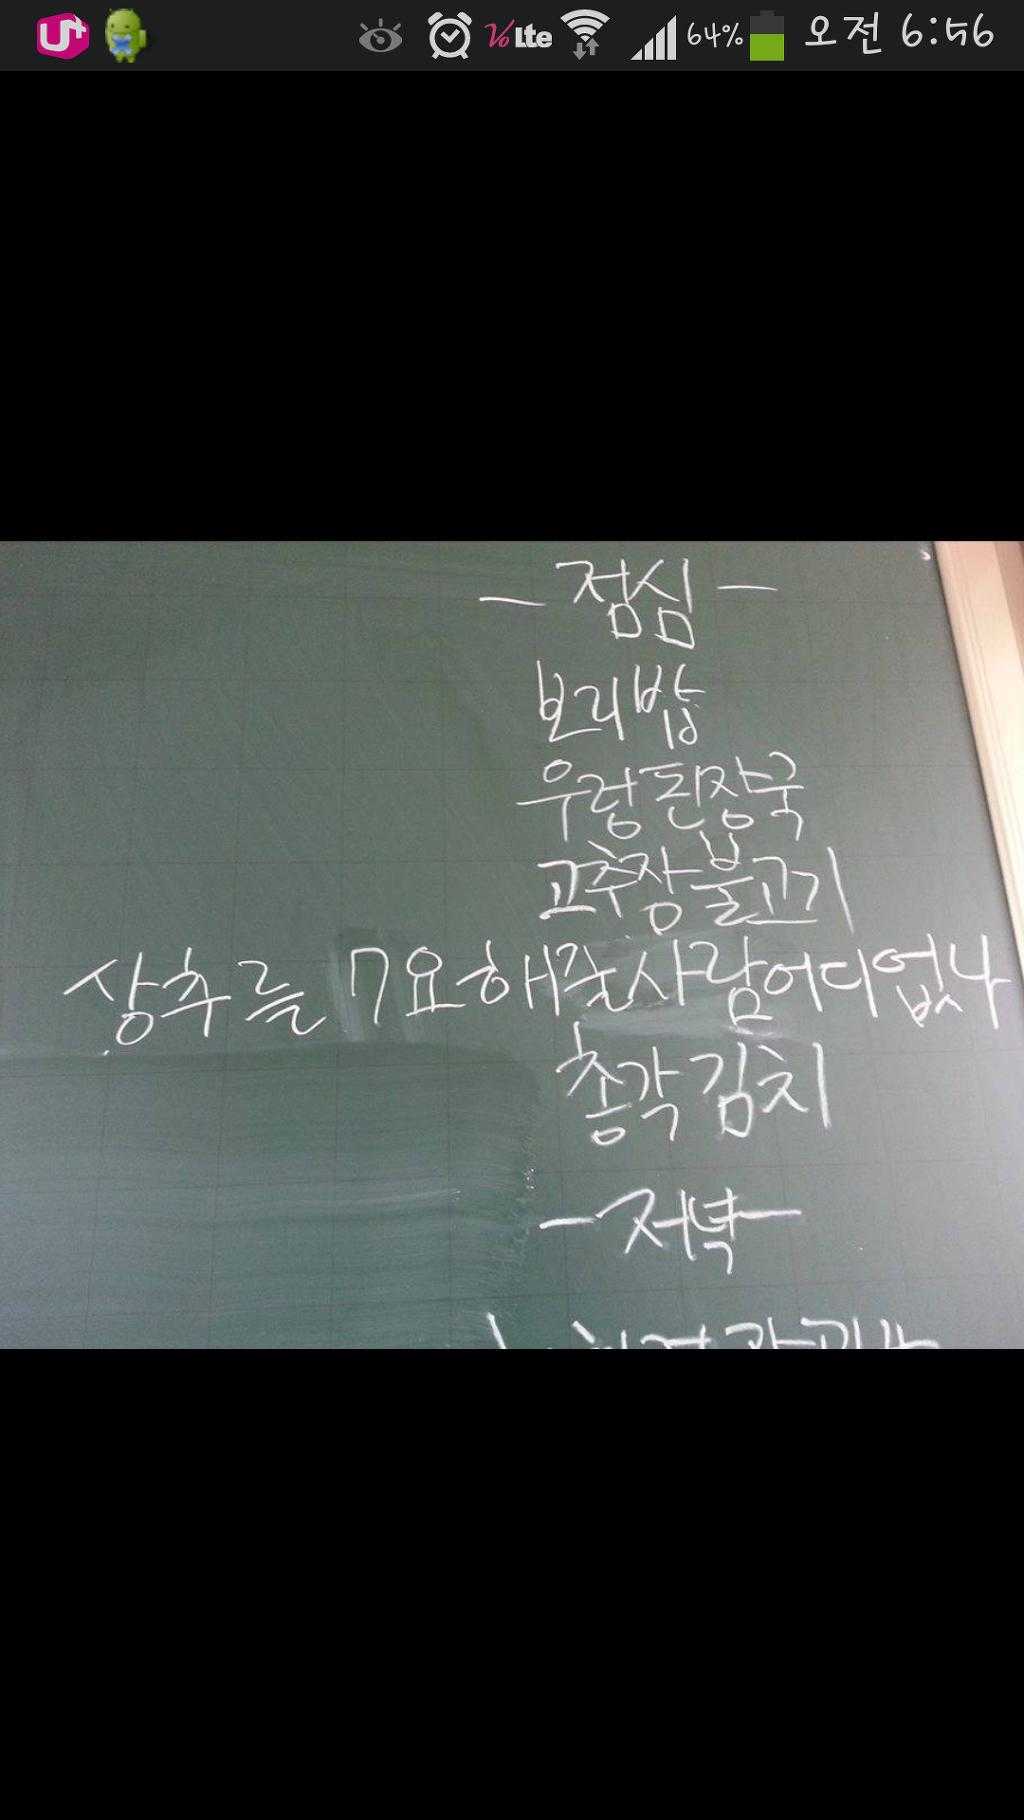 U+ VoLTE 64% 오전 6:56
- 점심 -
보리밥
우렁된장국
고추장불고기
상추를 7요해줄사람어디없나
총각김치
- 저녁 -